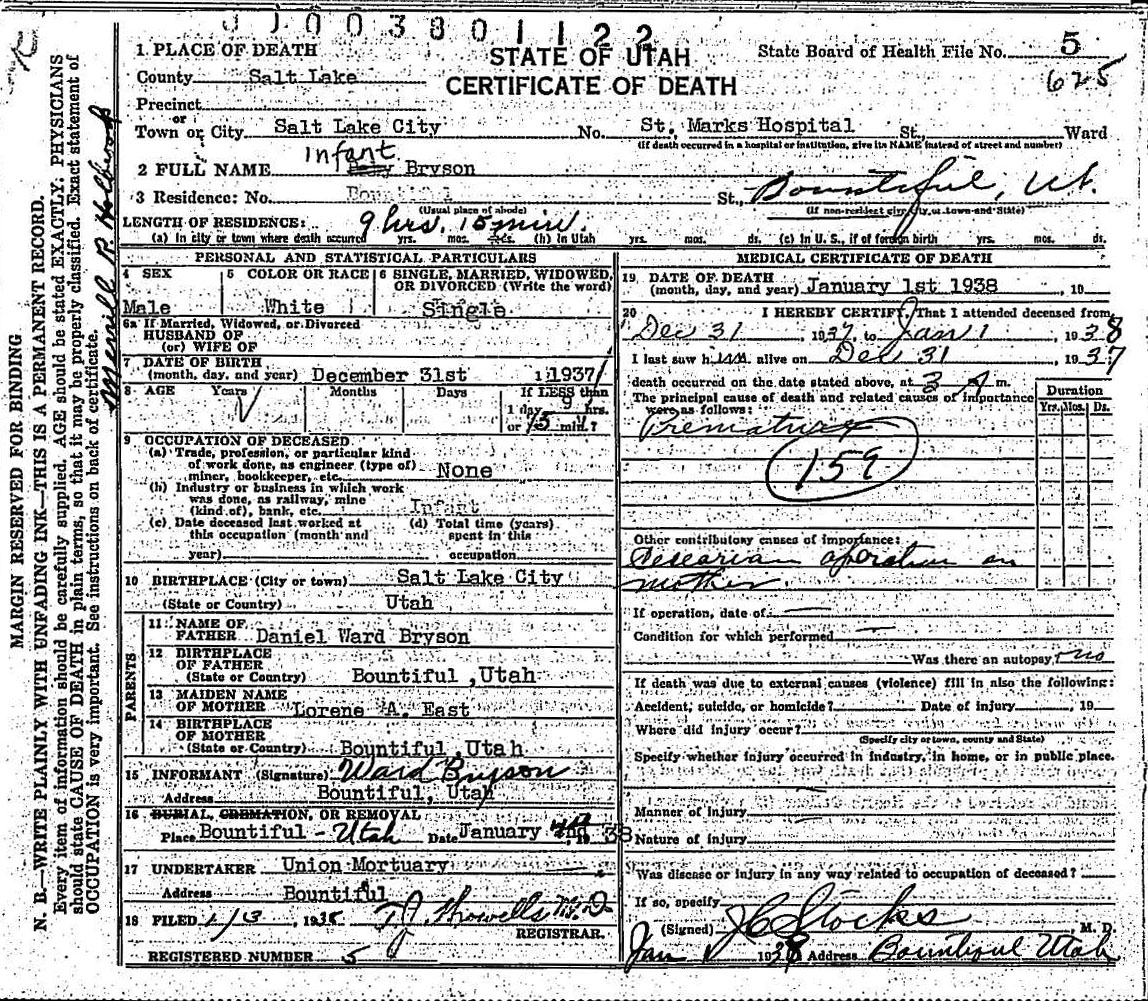 0 1 0 0 3 8 0 1 1 2 2
1 PLACE OF DEATH
STATE OF UTAH
CERTIFICATE OF DEATH
State Board of Health File No. 5
625
County Salt Lake
Precinct
or
Town or City Salt Lake City No. St. Marks Hospital St., Ward
(If death occurred in a hospital or institution, give its NAME instead of street and number)
2 FULL NAME Infant Bryson
3 Residence: No. Bountiful St., Bountiful, Ut.
(Usual place of abode) (If non-resident city or town and State)
LENGTH OF RESIDENCE: 9 hrs. 15 min.
(a) In city or town where death occurred yrs. mos. ds. (b) In Utah yrs. mos. ds. (c) In U. S., if of foreign birth yrs. mos. ds.
PERSONAL AND STATISTICAL PARTICULARS
4 SEX
Male
5 COLOR OR RACE
White
6 SINGLE, MARRIED, WIDOWED, OR DIVORCED (Write the word)
Single
6a If Married, Widowed, or Divorced
HUSBAND OF
(or) WIFE OF
7 DATE OF BIRTH
(month, day, and year) December 31st 1937
8 AGE Years Months Days If LESS than
1 day 9 hrs.
or 15 min.?
9 OCCUPATION OF DECEASED
(a) Trade, profession, or particular kind
of work done, as engineer (type of)
miner, bookkeeper, etc. None
(b) Industry or business in which work
was done, as railway, mine
(kind of), bank, etc. Infant
(c) Date deceased last worked at
this occupation (month and
year)
(d) Total time (years)
spent in this
occupation
10 BIRTHPLACE (City or town) Salt Lake City
(State or Country) Utah
PARENTS
11 NAME OF
FATHER Daniel Ward Bryson
12 BIRTHPLACE
OF FATHER
(State or Country) Bountiful, Utah
13 MAIDEN NAME
OF MOTHER Lorene A. East
14 BIRTHPLACE
OF MOTHER
(State or Country) Bountiful, Utah
15 INFORMANT (Signature) Ward Bryson
Address Bountiful, Utah
16 BURIAL, CREMATION, OR REMOVAL
Place Bountiful - Utah Date January 2nd, 19 38
17 UNDERTAKER Union Mortuary
Address Bountiful
18 FILED 1/3 1938 T J Howells M.D
REGISTRAR.
REGISTERED NUMBER 5
MEDICAL CERTIFICATE OF DEATH
19 DATE OF DEATH
(month, day, and year) January 1st 1938, 19
20 I HEREBY CERTIFY, That I attended deceased from
Dec 31 1937, to Jan 1, 1938
I last saw him alive on Dec 31 1937
death occurred on the date stated above, at 3 A m.
The principal cause of death and related causes of importance
were as follows:
Duration
Yrs. Mos. Ds.
Premature
159
Other contributory causes of importance:
Cesearian operation on
mother.
If operation, date of
Condition for which performed
Was there an autopsy? no
If death was due to external causes (violence) fill in also the following:
Accident, suicide, or homicide? Date of injury , 19
Where did injury occur?
(Specify city or town, county and State)
Specify whether injury occurred in industry, in home, or in public place.
Manner of Injury
Nature of Injury
Was disease or injury in any way related to occupation of deceased?
If so, specify
(Signed) J C Stocks, M. D.
Jan 1 1938 Address Bountiful Utah
MARGIN RESERVED FOR BINDING
N. B.—WRITE PLAINLY WITH UNFADING INK—THIS IS A PERMANENT RECORD.
Every item of information should be carefully supplied. AGE should be stated EXACTLY; PHYSICIANS
should state CAUSE OF DEATH in plain terms, so that it may be properly classified. Exact statement of
OCCUPATION is very important. See instructions on back of certificate.
Merrill P. Holbrook